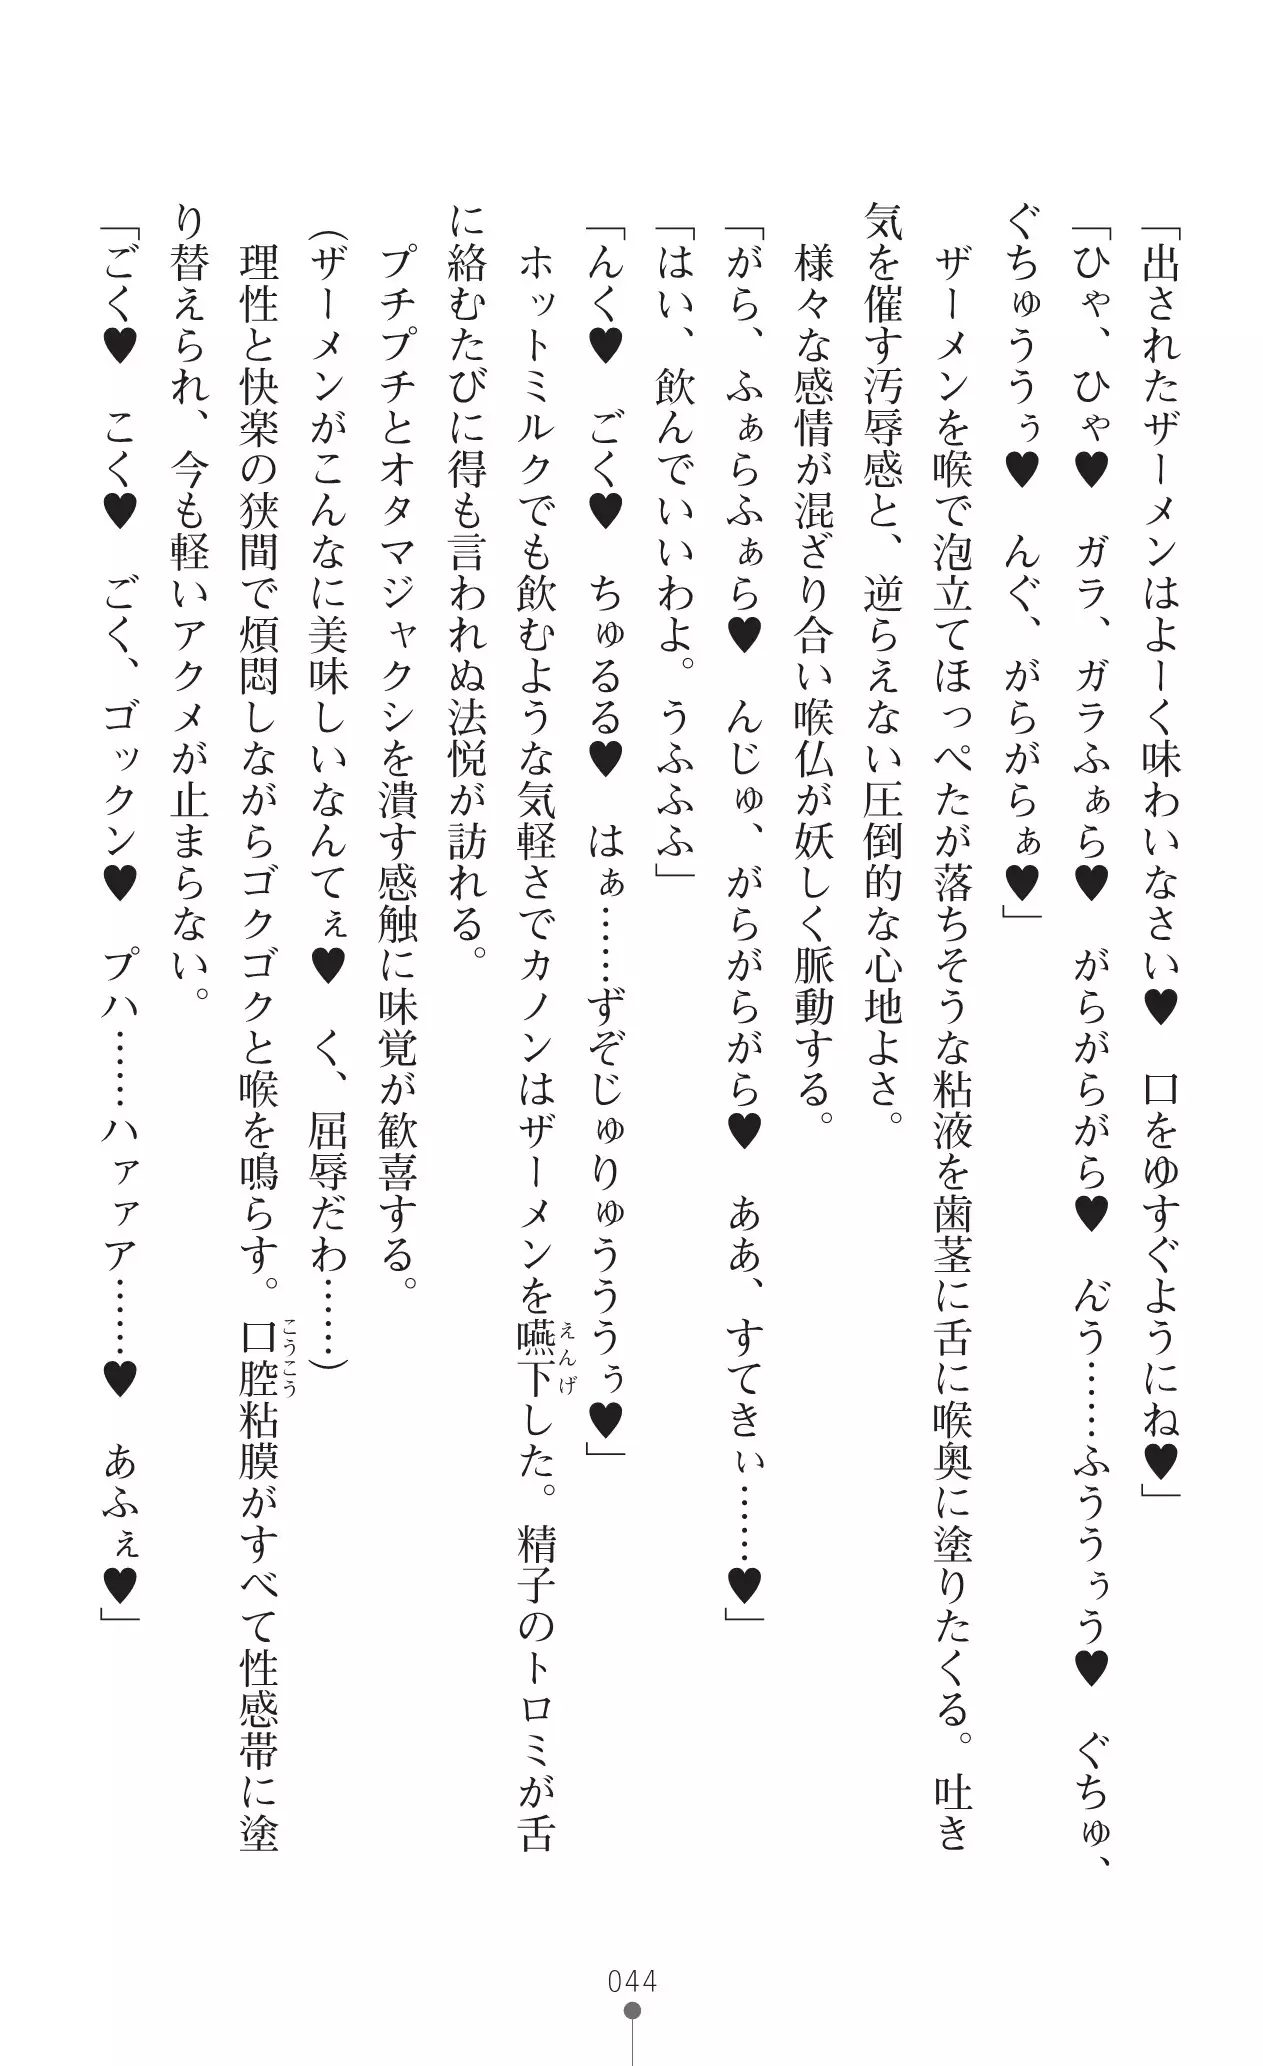 「出されたザーメンはよーく味わいなさい♥　口をゆすぐようにね♥」
「ひゃ、ひゃ♥　ガラ、ガラふぁら♥　がらがらがら♥　ん゛う……ふううぅう♥　ぐちゅ、
ぐちゅううぅ♥　んぐ、がらがらぁ♥」
　ザーメンを喉で泡立てほっぺたが落ちそうな粘液を歯茎に舌に喉奥に塗りたくる。吐き
気を催す汚辱感と、逆らえない圧倒的な心地よさ。
　様々な感情が混ざり合い喉仏が妖しく脈動する。
「がら、ふぁらふぁら♥　んじゅ、がらがらがら♥　ああ、すてきぃ……♥」
「はい、飲んでいいわよ。うふふふ」
「んく♥　ごく♥　ちゅるる♥　はぁ……ずぞじゅりゅうううぅ♥」
　ホットミルクでも飲むような気軽さでカノンはザーメンを嚥下した。精子のトロミが舌
えんげ
に絡むたびに得も言われぬ法悦が訪れる。
　プチプチとオタマジャクシを潰す感触に味覚が歓喜する。
（ザーメンがこんなに美味しいなんてぇ♥　く、屈辱だわ……）
　理性と快楽の狭間で煩悶しながらゴクゴクと喉を鳴らす。口腔粘膜がすべて性感帯に塗
こうこう
り替えられ、今も軽いアクメが止まらない。
「ごく♥　こく♥　ごく、ゴックン♥　プハ……ハァァア……♥　あふぇ♥」
044